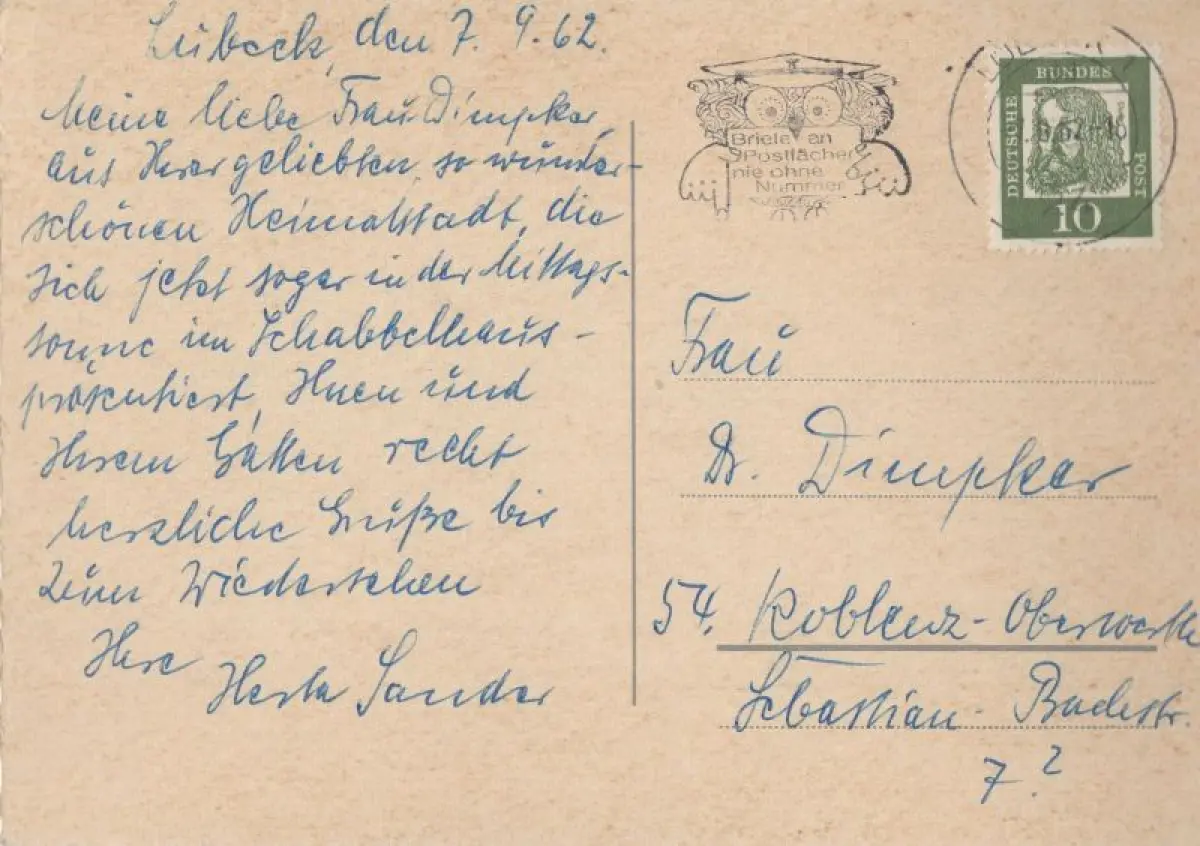 Lübeck, den 7. 9. 62.
Meine liebe Frau Dimpker,
aus Ihrer geliebten, so wunder-
schönen Heimatstadt, die
sich jetzt sogar in der Mittags-
sonne im Schabbelhaus-
präsentiert, Ihnen und
Ihrem Gatten recht
herzliche Grüße bis
zum Wiedersehen
Ihre
Herta Sander
Briefe an
Postfächer
nie ohne
Nummer
DEUTSCHE
BUNDES
POST
10
Frau
Dr. Dimpker
54. Koblenz-Oberwerth
Sebastian-Bachstr.
7?